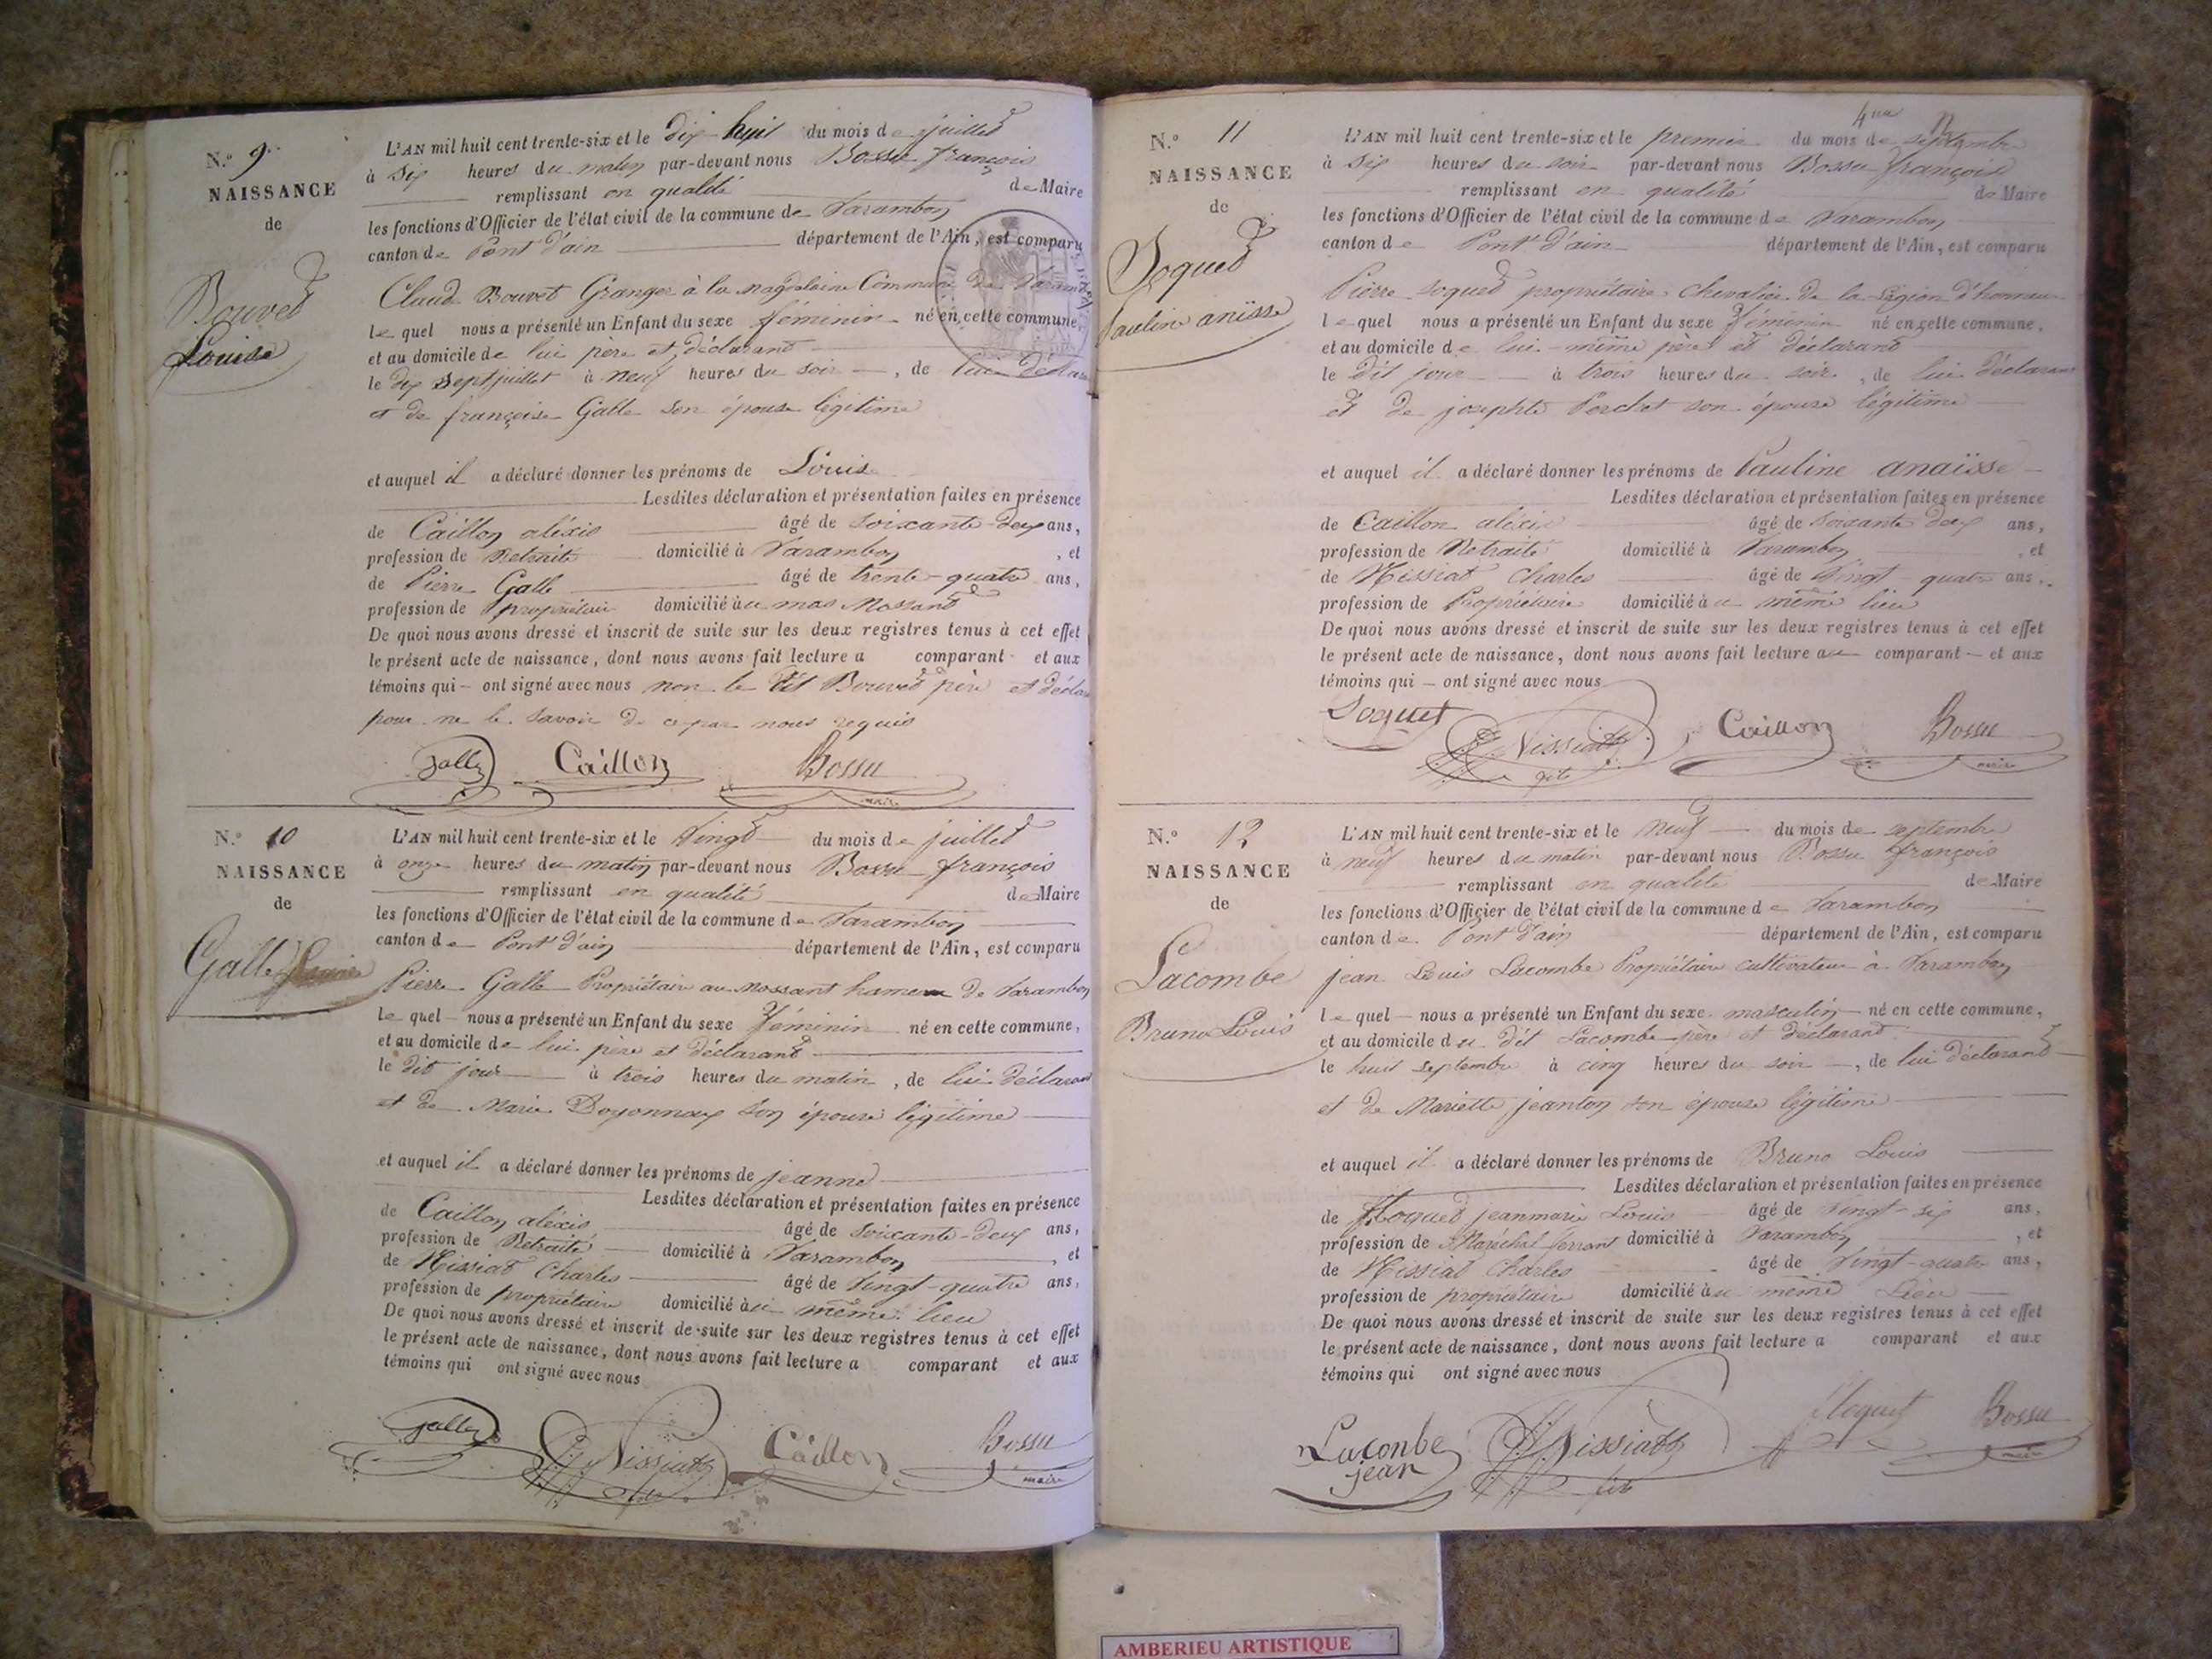 N.º 9
NAISSANCE
de
Bouvet
Louise
L'AN mil huit cent trente-six et le dix huit du mois de juillet
à six heures du matin par-devant nous Bossu françois
remplissant en qualité de Maire
les fonctions d'Officier de l'état civil de la commune de Varambon
canton de Pont d'ain département de l'Ain, est comparu
Claud Bouvet Granger à la Magdelaine Commune de Varambon
le quel nous a présenté un Enfant du sexe féminin né en cette commune,
et au domicile de lui père et déclarant
le dix sept juillet à neuf heures du soir, de lui déclarant
et de françoise Galle son épouse légitime
et auquel il a déclaré donner les prénoms de Louise
Lesdites déclaration et présentation faites en présence
de Caillon aléxis âgé de soixante-deux ans,
profession de Retraité domicilié à Varambon, et
de Pierre Galle âgé de trente-quatre ans,
profession de propriétaire domicilié au mas Mossant
De quoi nous avons dressé et inscrit de suite sur les deux registres tenus à cet effet
le présent acte de naissance, dont nous avons fait lecture a comparant et aux
témoins qui ont signé avec nous non le dit Bouvet père et déclarant
pour ne le savoir de ce par nous requis
Galle Caillon Bossu
maire
N.º 10
NAISSANCE
de
Galle
L'AN mil huit cent trente-six et le Vingt du mois de juillet
à onze heures du matin par-devant nous Bossu françois
remplissant en qualité de Maire
les fonctions d'Officier de l'état civil de la commune de Varambon
canton de Pont d'ain département de l'Ain, est comparu
Pierre Galle Propriétaire au Mossant hameau de Varambon
le quel nous a présenté un Enfant du sexe féminin né en cette commune,
et au domicile de lui père et déclarant
le dit jour à trois heures du matin, de lui déclarant
et de Marie Doyonnax son épouse légitime
et auquel il a déclaré donner les prénoms de jeanne
Lesdites déclaration et présentation faites en présence
de Caillon aléxis âgé de soixante-deux ans,
profession de Retraité domicilié à Varambon, et
de Nissiat Charles âgé de Vingt-quatre ans,
profession de propriétaire domicilié au même lieu
De quoi nous avons dressé et inscrit de suite sur les deux registres tenus à cet effet
le présent acte de naissance, dont nous avons fait lecture a comparant et aux
témoins qui ont signé avec nous
Galle Nissiat Caillon Bossu
maire
N.º 11
NAISSANCE
de
Soquet
Pauline anïsse
L'AN mil huit cent trente-six et le premier du mois de septembre
à six heures du soir par-devant nous Bossu françois
remplissant en qualité de Maire
les fonctions d'Officier de l'état civil de la commune de Varambon
canton de Pont d'ain département de l'Ain, est comparu
Pierre Soquet propriétaire chevalier de la Légion d'honneur
le quel nous a présenté un Enfant du sexe féminin né en cette commune,
et au domicile de lui-même père et déclarant
le dit jour à trois heures du soir, de lui déclarant
et de josephte Perchet son épouse légitime
et auquel il a déclaré donner les prénoms de Pauline anaïsse
Lesdites déclaration et présentation faites en présence
de Caillon aléxis âgé de soixante deux ans,
profession de Retraité domicilié à Varambon, et
de Nissiat Charles âgé de Vingt-quatre ans,
profession de Propriétaire domicilié au même lieu
De quoi nous avons dressé et inscrit de suite sur les deux registres tenus à cet effet
le présent acte de naissance, dont nous avons fait lecture au comparant et aux
témoins qui ont signé avec nous
Soquet Nissiat Caillon Bossu
maire
N.º 12
NAISSANCE
de
Lacombe
Bruno Louis
L'AN mil huit cent trente-six et le neuf du mois de septembre
à neuf heures du matin par-devant nous Bossu françois
remplissant en qualité de Maire
les fonctions d'Officier de l'état civil de la commune de Varambon
canton de Pont d'ain département de l'Ain, est comparu
jean Louis Lacombe Propriétaire cultivateur à Varambon
le quel nous a présenté un Enfant du sexe masculin né en cette commune,
et au domicile du dit Lacombe père et déclarant
le huit septembre à cinq heures du soir, de lui déclarant
et de Mariette jeanton son épouse légitime
et auquel il a déclaré donner les prénoms de Bruno Louis
Lesdites déclaration et présentation faites en présence
de jeanmarie Louis âgé de Vingt-six ans,
profession de Maréchal ferrant domicilié à Varambon, et
de Nissiat Charles âgé de Vingt-quatre ans,
profession de propriétaire domicilié au même Lieu
De quoi nous avons dressé et inscrit de suite sur les deux registres tenus à cet effet
le présent acte de naissance, dont nous avons fait lecture a comparant et aux
témoins qui ont signé avec nous
Lacombe Nissiat Bossu
jean maire
AMBERIEU ARTISTIQUE